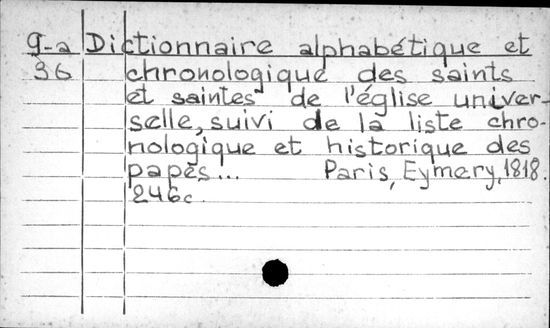 9-a Dictionnaire alphabétique et
36 chronologique des saints
et saintes de l'église univer-
selle, suivi de la liste chro-
nologique et historique des
papes... Paris, Eymery, 1818.
246c.